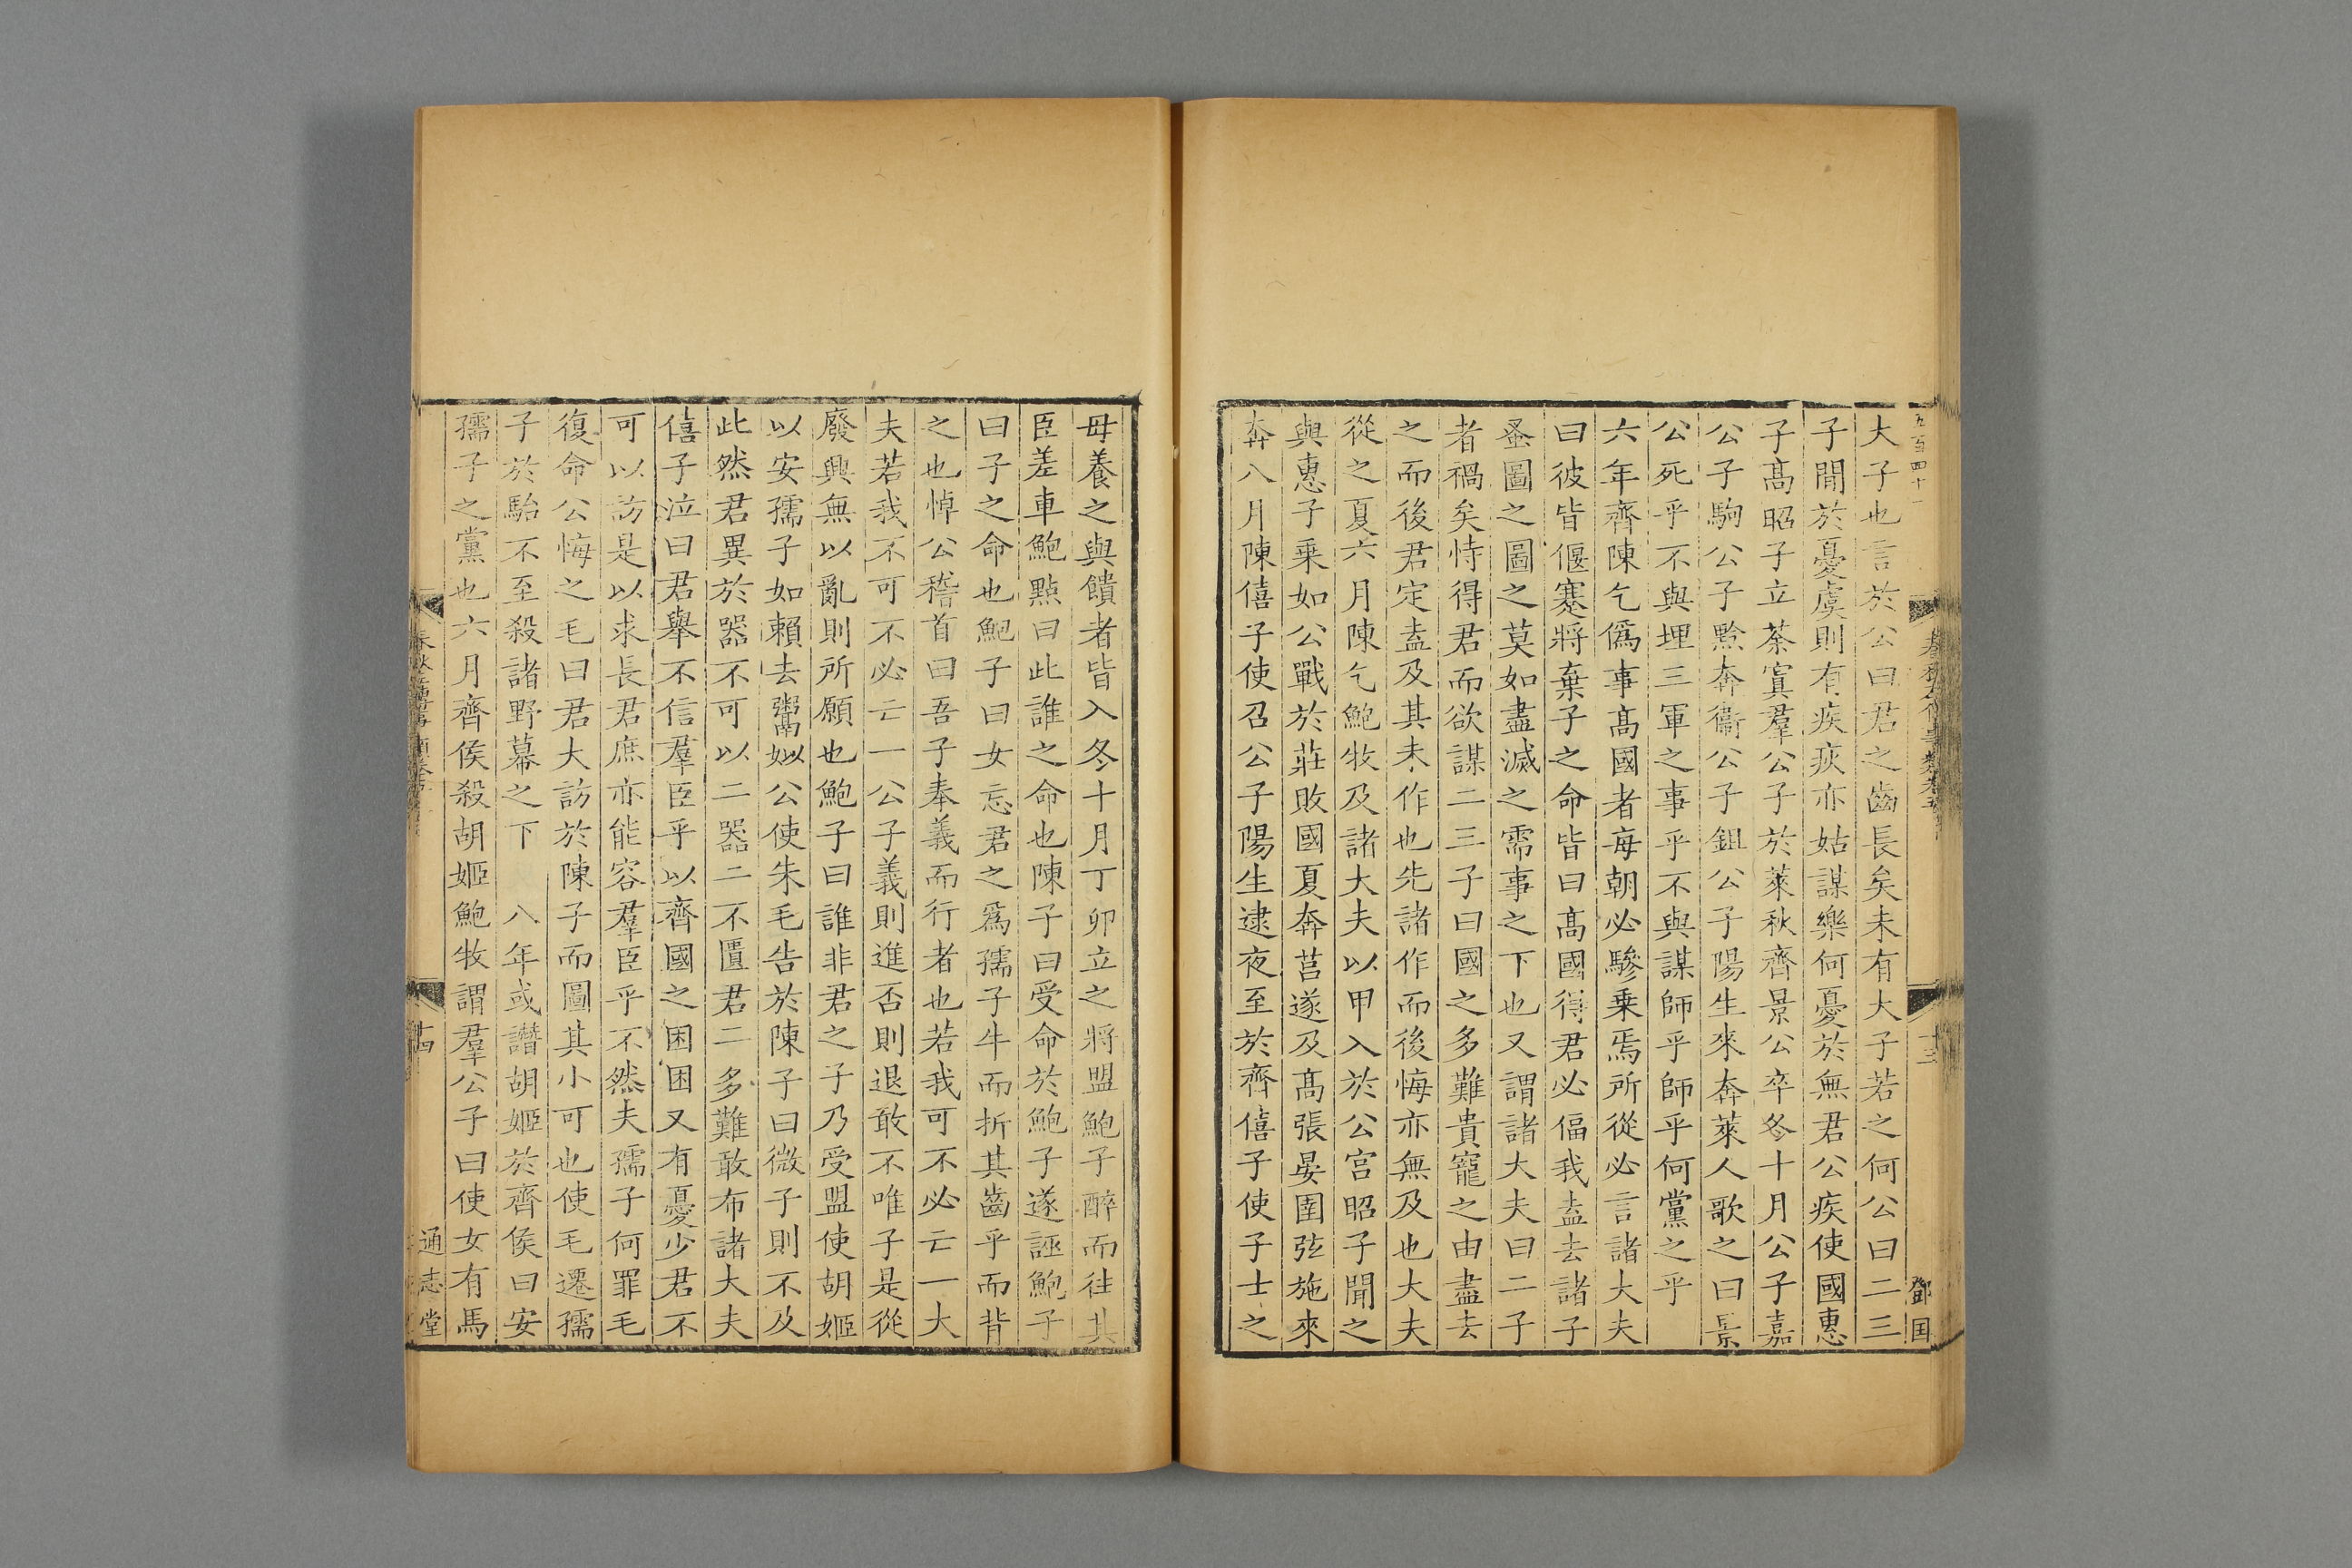 五百四十一
大子也言於公曰君之齒長矣未有大子若之何公曰二三
子間於憂虞則有疾疢亦姑謀樂何憂於無君公疾使國惠
子高昭子立荼寘羣公子於萊秋齊景公卒冬十月公子嘉
公子駒公子黔奔衞公子鉏公子陽生來奔萊人歌之曰景
公死乎不與埋三軍之事乎不與謀師乎師乎何黨之乎
六年齊陳乞僞事高國者每朝必驂乗焉所從必言諸大夫
曰彼皆偃蹇將棄子之命皆曰高國得君必偪我盍去諸子
蚤圖之圖之莫如盡滅之需事之下也又謂諸大夫曰二子
者禍矣恃得君而欲謀二三子曰國之多難貴寵之由盡去
之而後君定盍及其未作也先諸作而後悔亦無及也大夫
從之夏六月陳乞鮑牧及諸大夫以甲入於公宮昭子聞之
與惠子乗如公戰於莊敗國夏奔莒遂及高張晏圉弦施來
奔八月陳僖子使召公子陽生逮夜至於齊僖子使子士之
鄧国
母養之與饋者皆入冬十月丁卯立之將盟鮑子醉而往其
臣差車鮑點曰此誰之命也陳子曰受命於鮑子遂誣鮑子
曰子之命也鮑子曰女忘君之爲孺子牛而折其齒乎而背
之也悼公稽首曰吾子奉義而行者也若我可不必亡一大
夫若我不可不必亡一公子義則進否則退敢不唯子是從
廢興無以亂則所願也鮑子曰誰非君之子乃受盟使胡姬
以安孺子如賴去鬻姒公使朱毛告於陳子曰微子則不及
此然君異於器不可以二器二不匱君二多難敢布諸大夫
僖子泣曰君舉不信羣臣乎以齊國之困困又有憂少君不
可以訪是以求長君庶亦能容羣臣乎不然夫孺子何罪毛
復命公悔之毛曰君大訪於陳子而圖其小可也使毛遷孺
子於駘不至殺諸野幕之下　八年或譖胡姬於齊侯曰安
孺子之黨也六月齊侯殺胡姬鮑牧謂羣公子曰使女有馬
十四
通志堂